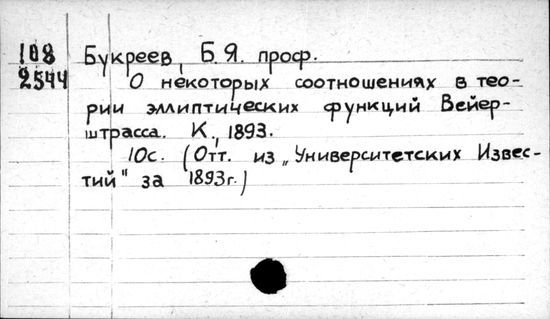 108 Букреев, Б.Я. проф.
2544 О некоторых соотношениях в тео-
рии эллиптических функций Вейер-
штрасса. К., 1893.
10с. (Отт. из „Университетских Извес-
тий" за 1893г.)